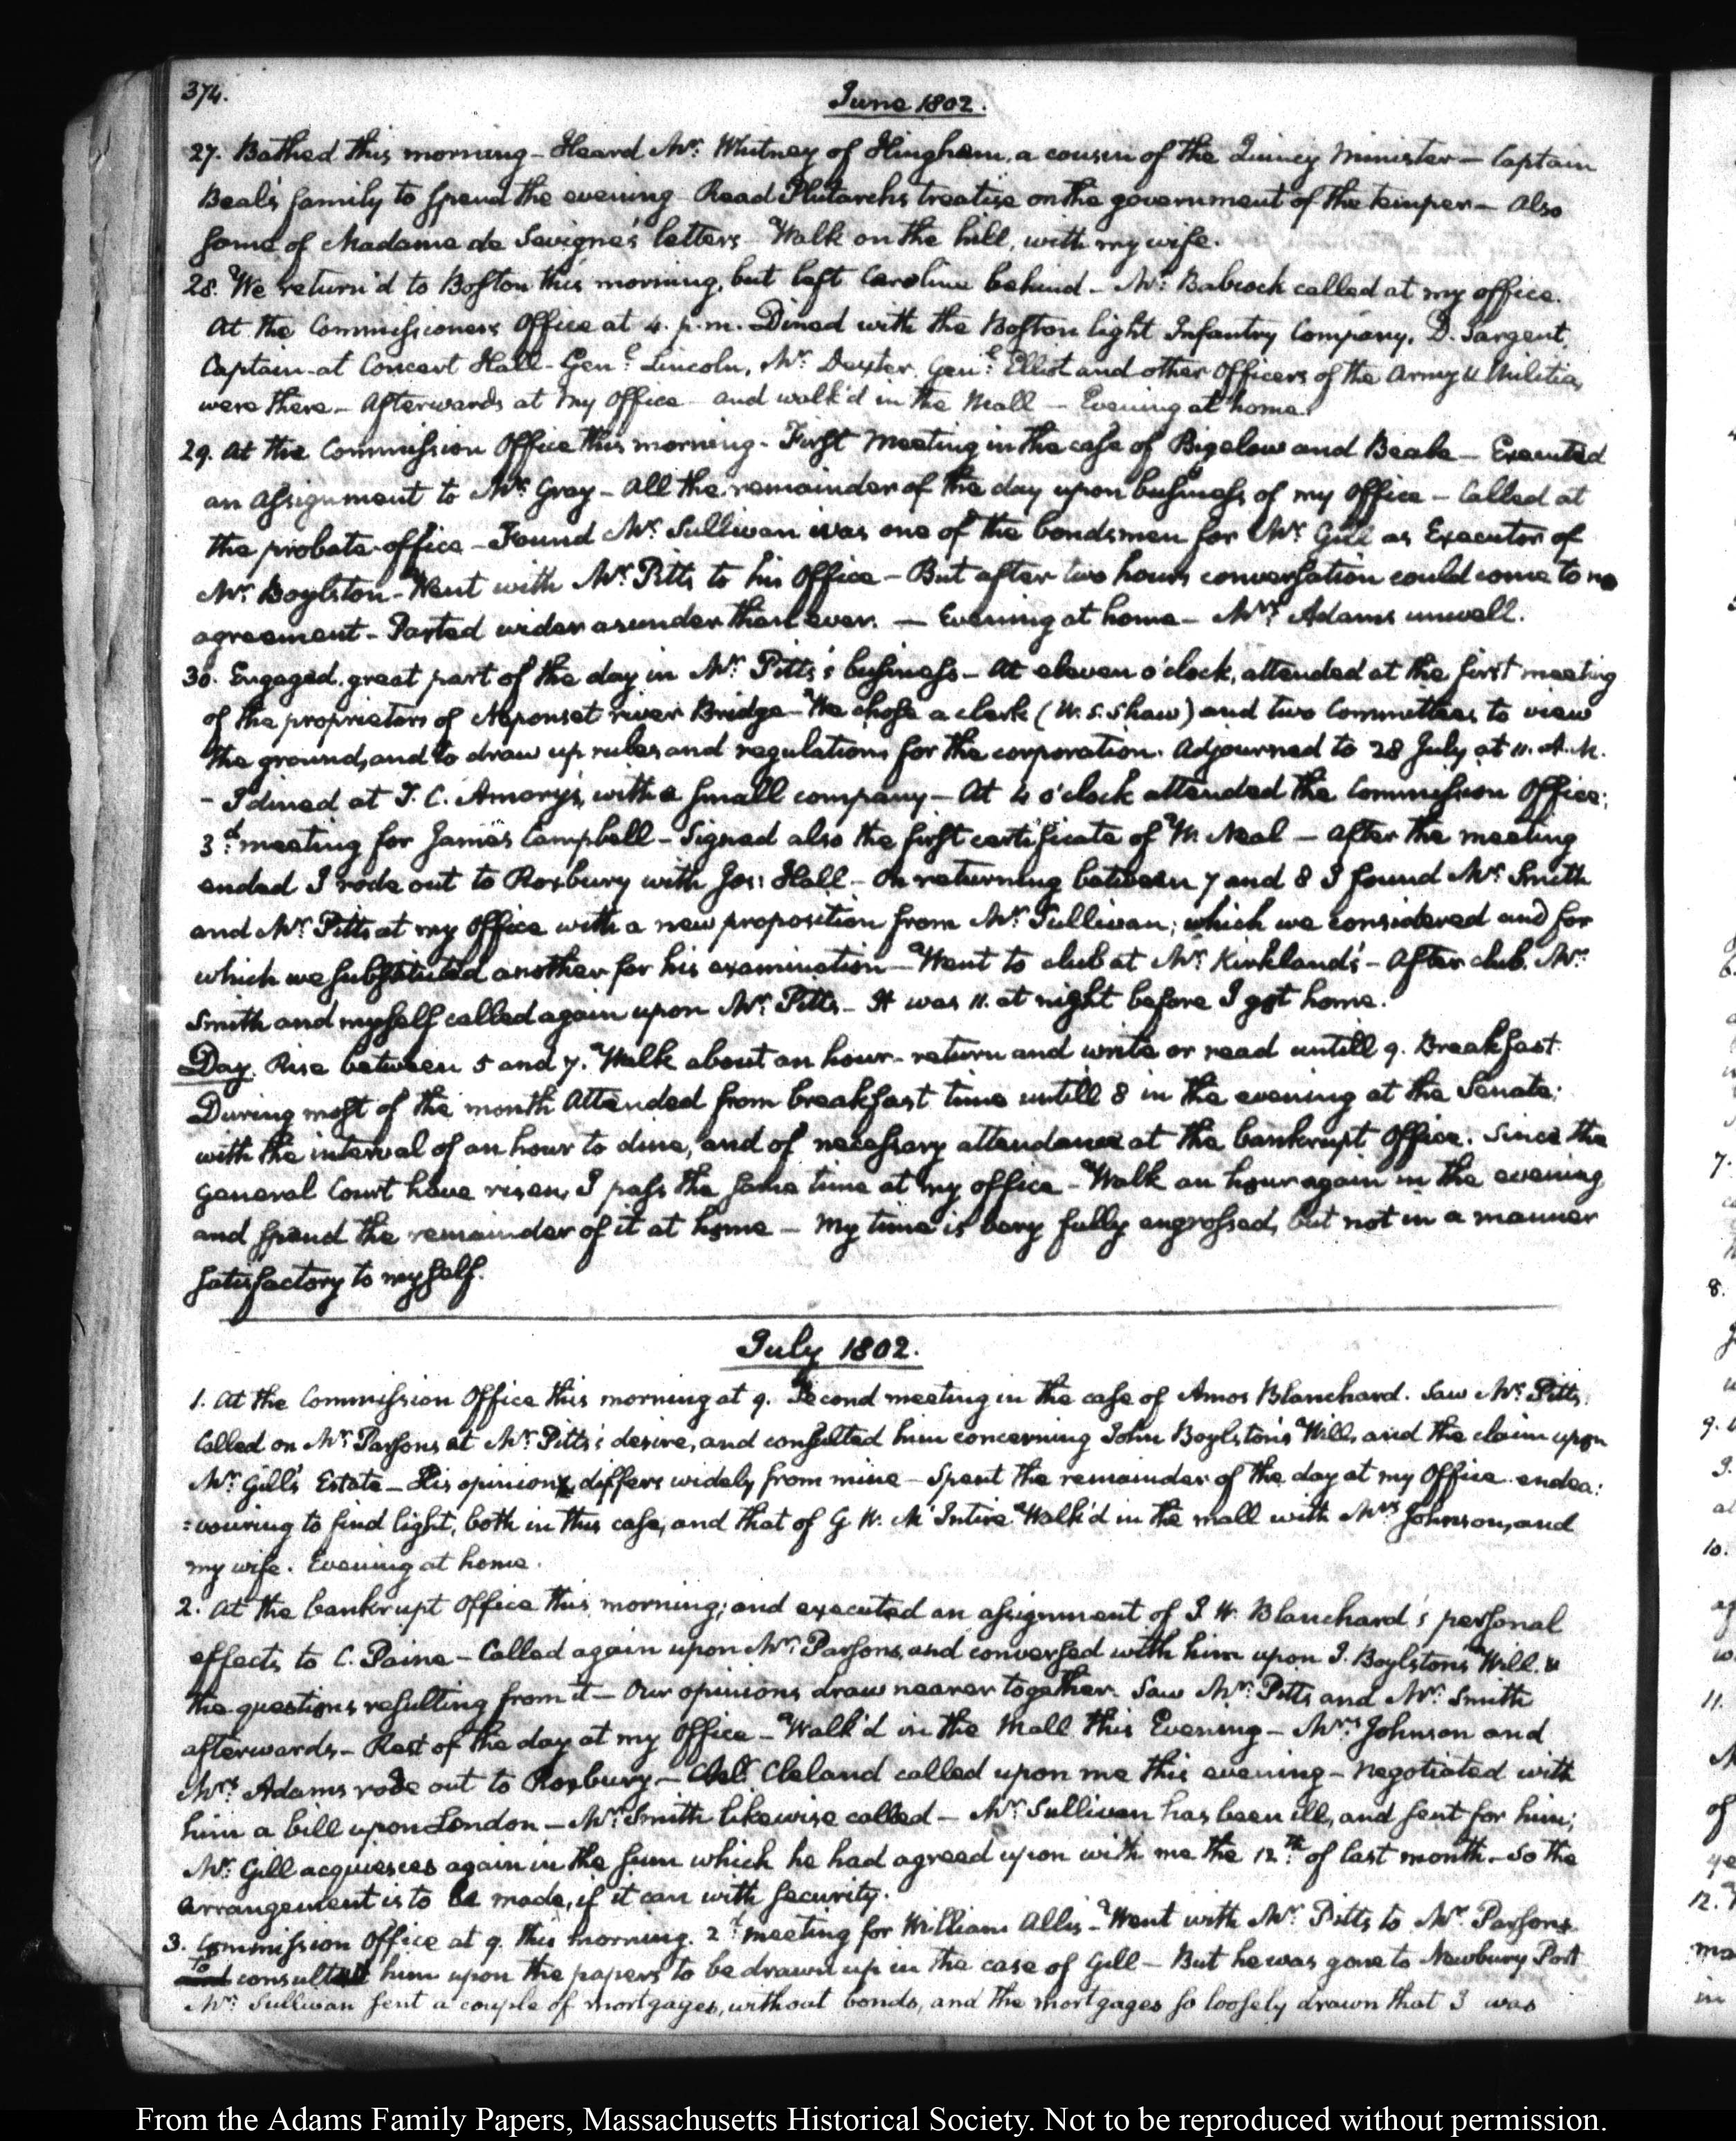 374.
June 1802.
27. Bathed this morning – Heard Mr: Whitney of Hingham, a cousin of the Quincy Minister – Captain
Beal's family to spend the evening – Read Plutarchs treatise on the government of the temper – Also
some of Madame de Sevigne's letters – Walk on the hill, with my wife.
28. We return'd to Boston this morning, but left Caroline behind – Mr: Babcock called at my office.
At the Commissioners Office at 4. p.m. Dined with the Boston light Infantry Company, D. Sargent,
Captain – at Concert Hall – Genl: Lincoln, Mr: Dexter, Genl: Elliot and other Officers of the Army & Militia,
were there – Afterwards at my Office – and walk'd in the Mall – Evening at home.
29. At the Commission Office this morning – First Meeting in the case of Bigelow and Beale – Executed
an assignment to Mr: Gray – All the remainder of the day upon business of my Office – Called at
the probate-office – Found Mr: Sullivan was one of the bondsmen for Mr: Gill as Executor of
Mr: Boylston – Went with Mr: Pitts to his Office – But after two hours conversation could come to no
agreement – Parted wider asunder than ever. – Evening at home – Mrs: Adams unwell.
30. Engaged great part of the day in Mr: Pitts's business – At eleven o'clock, attended at the first meeting
of the proprietors of Neponset river Bridge – We chose a clerk (W. S. Shaw) and two Committees to view
the ground, and to draw up rules and regulations for the corporation. Adjourned to 28 July, at 11. A.M.
– I dined at T. C. Amory's, with a small company – At 4 o'clock attended the Commission Office;
3d: meeting for James Campbell – Signed also the first certificate of W. Neal – After the meeting
ended I rode out to Roxbury with Jos: Hall – On returning between 7 and 8 I found Mr: Smith
and Mr: Pitts at my Office with a new proposition from Mr: Sullivan; which we considered and for
which we substituted another for his examination – Went to club at Mr: Kirkland's – After club, Mr:
Smith and myself called again upon Mr: Pitts – It was 11. at night before I got home.
Day. Rise between 5 and 7. Walk about an hour – return and write or read untill 9. Breakfast.
During most of the month Attended from breakfast time untill 8 in the evening at the Senate;
with the interval of an hour to dine, and of necessary attendance at the bankrupt Office. Since the
General Court have risen, I pass the same time at my office – Walk an hour again in the evening
and spend the remainder of it at home – My time is very fully engrossed, but not in a manner
satisfactory to myself.
July 1802.
1. At the Commission Office this morning at 9. Second meeting in the case of Amos Blanchard. Saw Mr: Pitts,
Called on Mr: Parsons at Mr: Pitts's desire, and consulted him concerning John Boylston's Will, and the claim upon
Mr: Gill's Estate – His opinion differs widely from mine – Spent the remainder of the day at my Office endea:
:vouring to find light, both in this case, and that of G. W. M'Intire. Walk'd in the mall with Mrs: Johnson, and
my wife. Evening at home.
2. At the bankrupt Office this morning; and executed an assignment of J. W. Blanchard's personal
effects to C. Paine – Called again upon Mr: Parsons, and conversed with him upon J. Boylston's Will. &
the questions resulting from it – Our opinions draw nearer together. Saw Mr: Pitts and Mr: Smith
afterwards – Rest of the day at my Office – Walk'd in the Mall this Evening – Mrs: Johnson and
Mrs: Adams rode out to Roxbury – Cleland called upon me this evening – negotiated with
him a bill upon London – Mr: Smith likewise called – Mr: Sullivan has been ill, and sent for him;
Mr: Gill acquiesces again in the sum which he had agreed upon with me the 12th: of last month – So the
arrangement is to be made, if it can with security.
3. Commission Office at 9. this morning. 2d: meeting for William Allis – Went with Mr: Pitts to Mr: Parsons
to consult him upon the papers to be drawn up in the case of Gill – But he was gone to Newbury Port
Mr: Sullivan sent a couple of mortgages, without bonds, and the mortgages so loosely drawn that I was
From the Adams Family Papers, Massachusetts Historical Society. Not to be reproduced without permission.